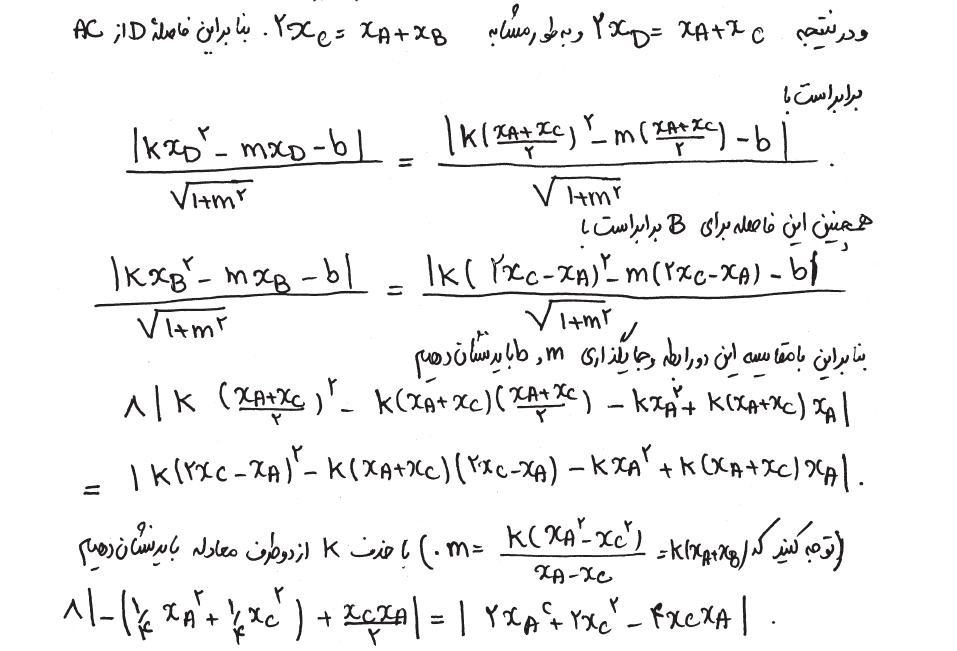 و در نتیجه ۲x_D = x_A + x_C و به طور مشابه ۲x_C = x_A + x_B. بنابراین فاصلهٔ D از AC
برابر است با
|kx_D^۲ - mx_D - b| / √(۱+m^۲) = |k((x_A+x_C)/۲)^۲ - m((x_A+x_C)/۲) - b| / √(۱+m^۲) .
همچنین این فاصله برای B برابر است با
|kx_B^۲ - mx_B - b| / √(۱+m^۲) = |k(۲x_C-x_A)^۲ - m(۲x_C-x_A) - b| / √(۱+m^۲)
بنابراین با مقایسه این دو رابطه و جایگذاری m و b باید نشان دهیم
۸|k((x_A+x_C)/۲)^۲ - k(x_A+x_C)((x_A+x_C)/۲) - kx_A^۲ + k(x_A+x_C)x_A|
= |k(۲x_C-x_A)^۲ - k(x_A+x_C)(۲x_C-x_A) - kx_A^۲ + k(x_A+x_C)x_A|.
(توجه کنید که m = k(x_A^۲-x_C^۲)/(x_A-x_C) = k(x_A+x_B).) با حذف k از دو طرف معادله باید نشان دهیم
۸|-(۱/۴ x_A^۲ + ۱/۴ x_C^۲) + x_Cx_A/۲| = |۲x_A^۲ + ۲x_C^۲ - ۴x_Cx_A| .